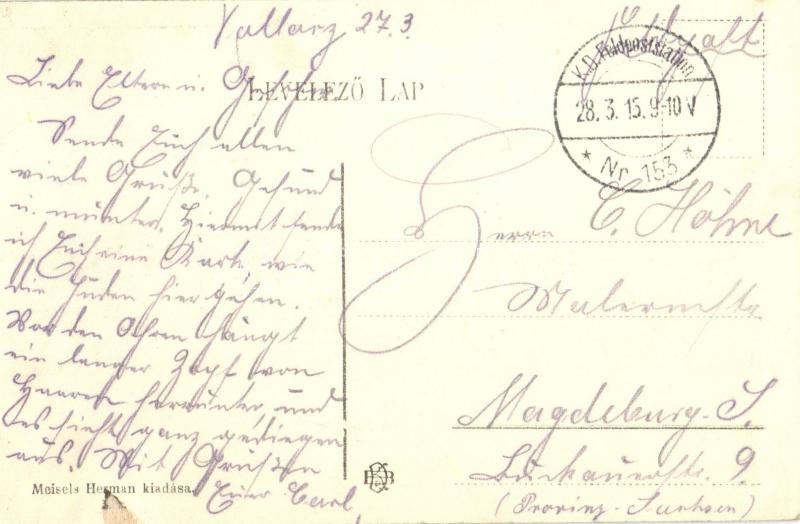 Vallarz 27.3
Feldpost
Liebe Eltern u. Geschw.
LEVELEZŐ LAP
K.D. Feldpoststation
28. 3. 15. 9-10 V
* Nr 153 *
Sende Euch allen
viele Grüße. Gesund
u. munter. Hiermit sende
ich Euch eine Karte, wie
die Juden hier gehen.
Vor den Ohren hängt
ein langer Zopf von
Haaren herunter, und
es sieht ganz gediegen
aus. Mit Grüßen
Euer Carl
Herrn C. Höhne
Malermstr
Magdeburg-S.
Buckauerstr. 9.
(Provinz-Sachsen)
Meisels Herman kiadása.